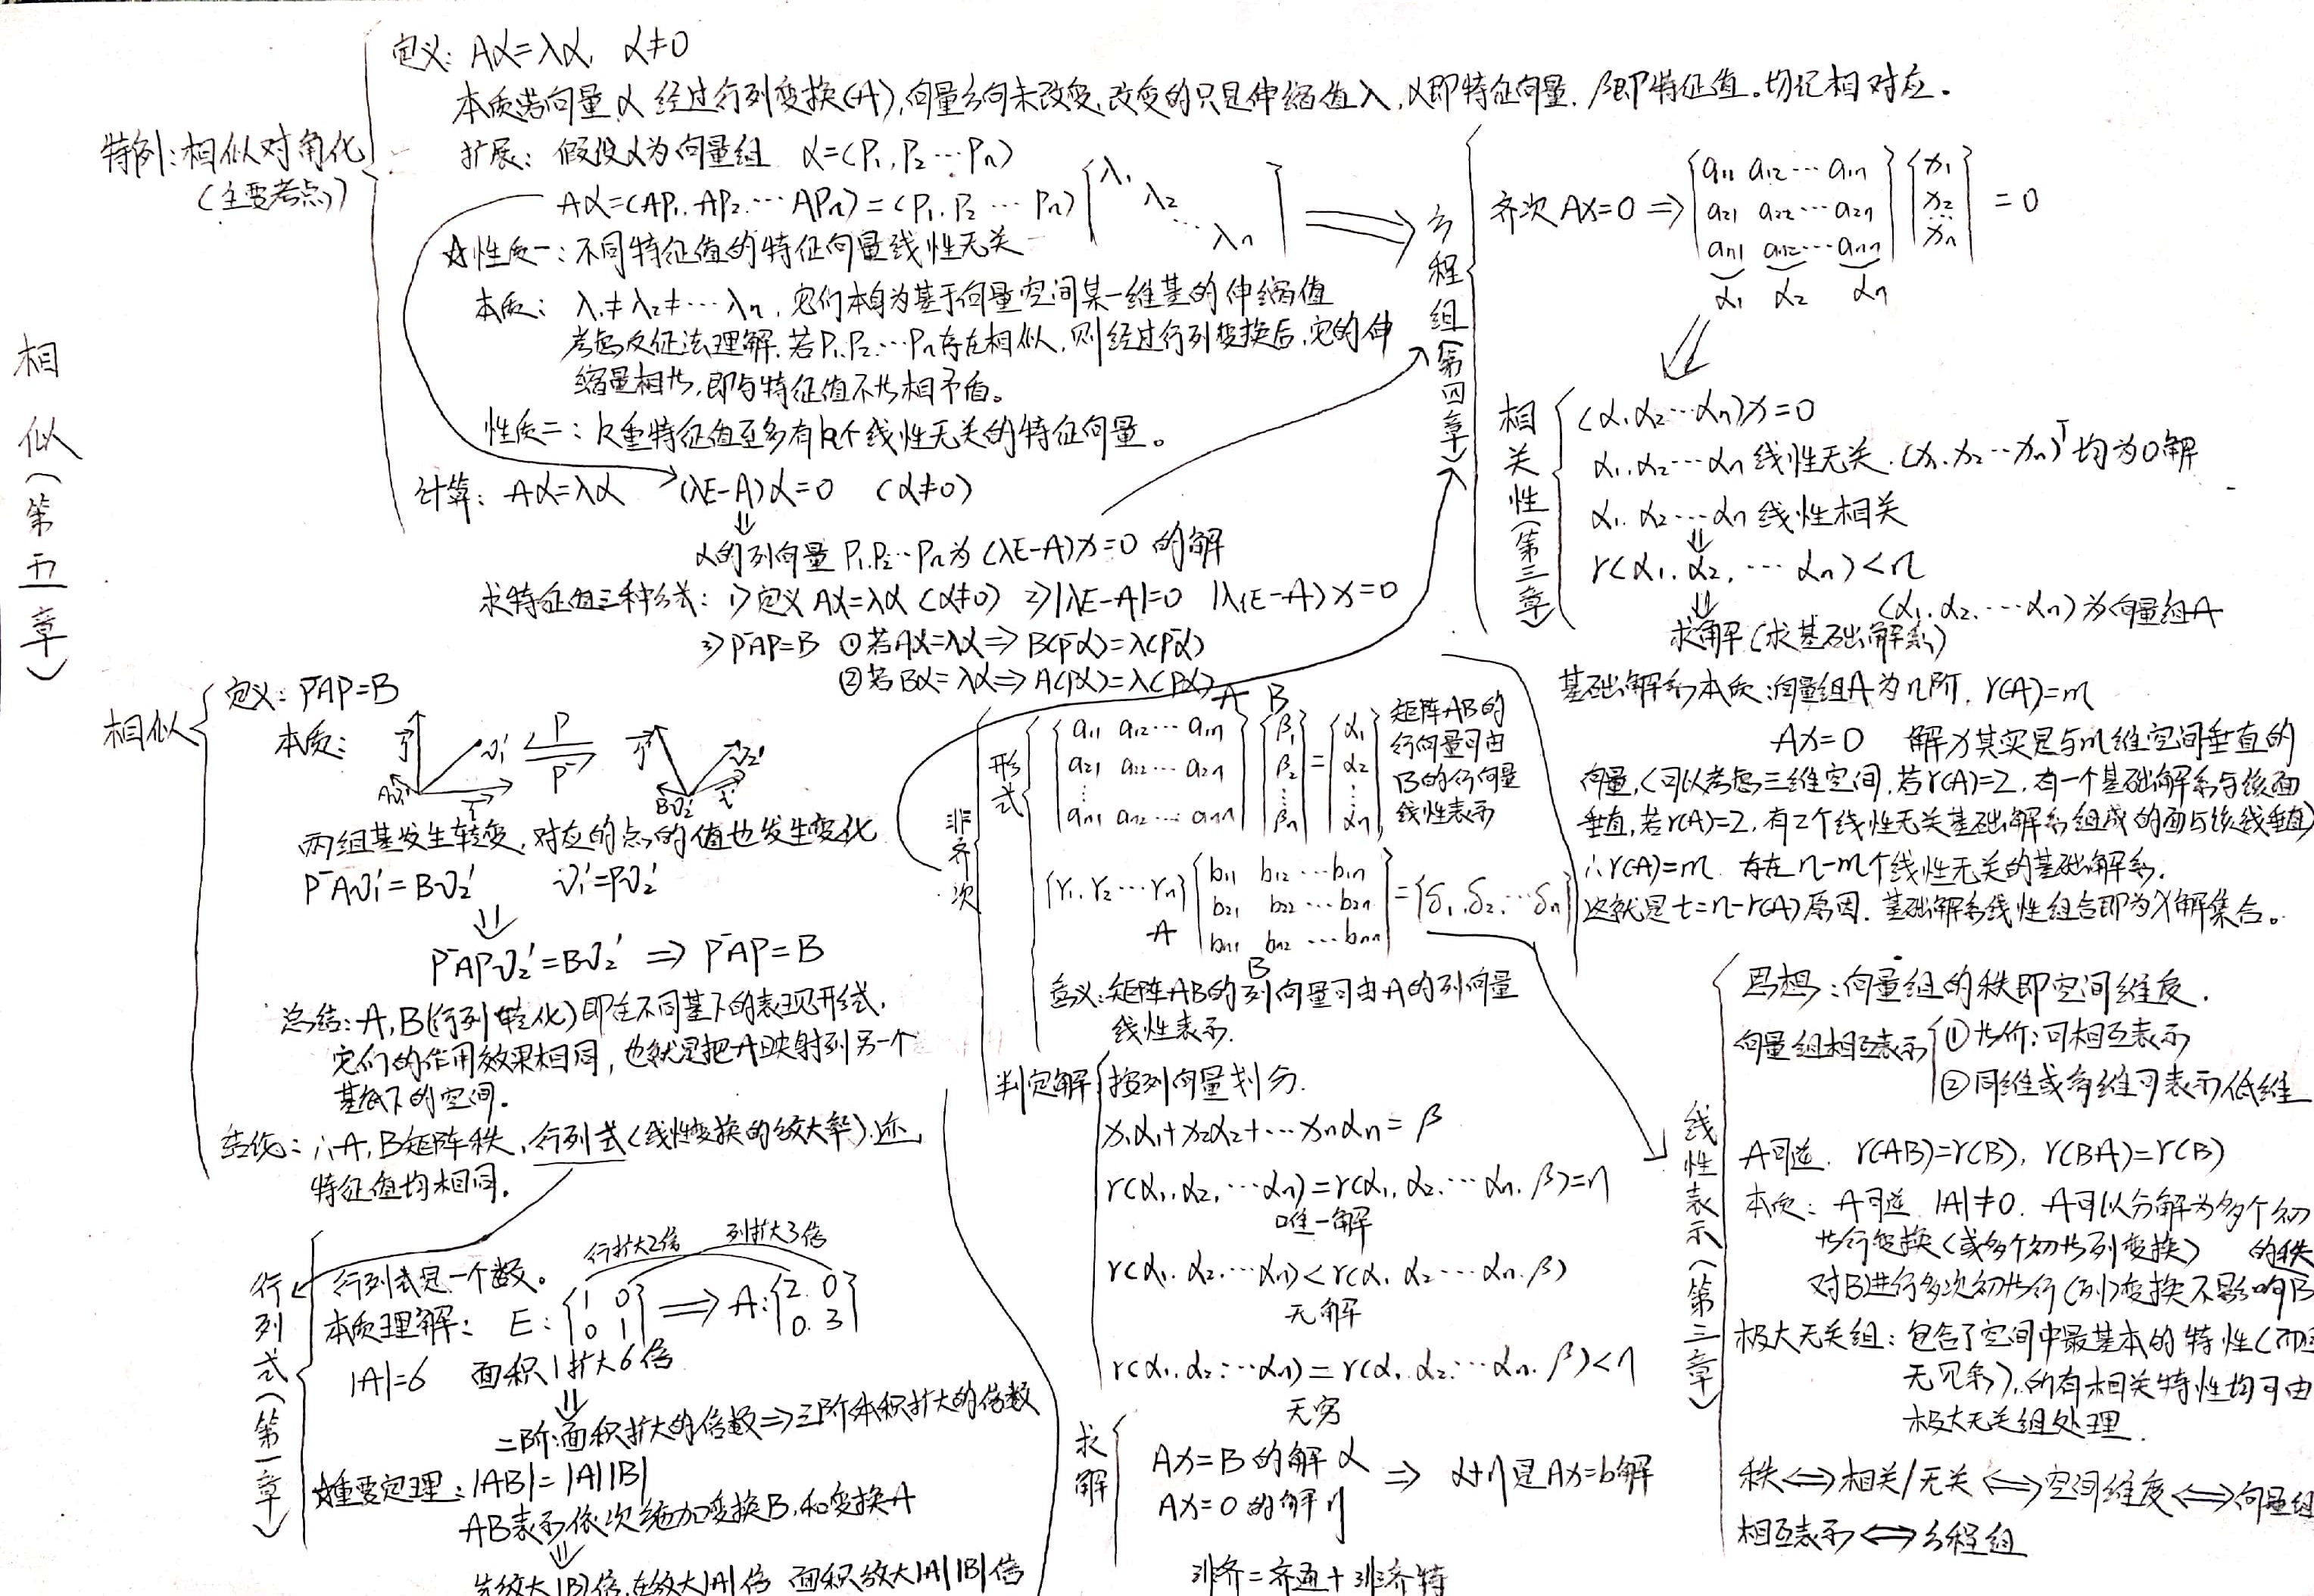 相似(第五章)
特例:相似对角化
(主要考点)
定义: Aα=λα, α≠0
本质:若向量α 经过行列变换(A),向量方向未改变,改变的只是伸缩值λ,α即特征向量. λ即特征值。切记相对应.
扩展: 假设α为向量组 α=(P₁,P₂…Pn)
Aα=(AP₁,AP₂…APn)=(P₁,P₂…Pn)[λ₁ λ₂ … λn]
☆性质一:不同特征值的特征向量线性无关
本质: λ₁≠λ₂≠…λn,它们本身为基于向量空间某一维基的伸缩值
考虑反证法理解.若P₁,P₂…Pn存在相似,则经过行列变换后,它的伸
缩量相等,即与特征值不等相矛盾。
性质二:k重特征值至多有k个线性无关的特征向量。
计算: Aα=λα → (λE-A)α=0 (α≠0)
⇓
α的列向量 P₁,P₂…Pn为(λE-A)x=0 的解
求特征值三种方式: 1)定义 Aα=λα (α≠0) 2)|λE-A|=0 |λ(E-A)x=0
3) P⁻AP=B ①若Aα=λα⇒B(P⁻α)=λ(P⁻α)
②若Bα=λα⇒A(Pα)=λ(Pα)
相似
定义: P⁻AP=B
本质:
j i v₁' Av₁' P P⁻ j i v₂' Bv₂'
两组基发生转变,对应的点的值也发生变化
P⁻Av₁'=Bv₂' v₁'=Pv₂'
⇓
P⁻APv₂'=Bv₂' ⇒ P⁻AP=B
总结:A,B(行列转化)即在不同基下的表现形式,
它们的作用效果相同,也就是把A映射到另一个
基底下的空间.
结论:∴A,B矩阵秩,行列式(线性变换的放大率),迹,
特征值均相同.
行列式(第一章)
行列式是一个数。
行扩大2倍 列扩大3倍
本质理解: E:[1 0
0 1] ⇒ A:[2 0
0 3]
|A|=6 面积1扩大6倍
⇓
二阶:面积扩大的倍数⇒三阶体积扩大的倍数
☆重要定理:|AB|=|A||B|
AB表示依次施加变换B,和变换A
⇓
先放大|B|倍,在放大|A|倍 面积放大|A||B|倍
方程组(第四章)
齐次 AX=0 ⇒ [a₁₁ a₁₂…a₁n
a₂₁ a₂₂…a₂n
an₁ an₂…ann] [x₁ x₂ … xn] = 0
α₁ α₂ αn
相关性(第三章)
(α₁α₂…αn)x=0
α₁,α₂…αn 线性无关.(x₁,x₂…xn)ᵀ均为0解
α₁,α₂…αn 线性相关
⇓
r(α₁,α₂,…αn)<n
⇓ (α₁,α₂,…αn)为向量组A
求解(求基础解系)
基础解系本质:向量组A为n阶, r(A)=m
Ax=0 解x其实是与m维空间垂直的
向量,(可以考虑三维空间,若r(A)=2,有一个基础解系与该面
垂直,若r(A)=2,有2个线性无关基础解系组成的面与该线垂直)
∴r(A)=m 存在n-m个线性无关的基础解系.
这就是t=n-r(A)原因. 基础解系线性组合即为X解集合。
非齐次
形式
A B
[a₁₁ a₁₂…a₁n
a₂₁ a₂₂…a₂n
⋮
an₁ an₂…ann] [β₁ β₂ ⋮ βn] = [α₁ α₂ ⋮ αn]
矩阵AB的
行向量可由
B的行向量
线性表示
[γ₁,γ₂…γn] [b₁₁ b₁₂…b₁n
b₂₁ b₂₂…b₂n
bn₁ bn₂…bnn] = [δ₁,δ₂,…δn]
A B
意义:矩阵AB的列向量可由A的列向量
线性表示.
判定解
按列向量划分.
x₁α₁+x₂α₂+…xnαn=β
r(α₁,α₂,…αn)=r(α₁,α₂,…αn,β)=n
唯一解
r(α₁,α₂,…αn)<r(α₁,α₂…αn,β)
无解
r(α₁,α₂…αn)=r(α₁,α₂…αn,β)<n
无穷
求解
Ax=B 的解 α
Ax=0 的解 η
⇒ α+η是Ax=b解
非齐=齐通+非齐特
线性表示(第三章)
思想:向量组的秩即空间维度.
向量组相互表示
①等价:可相互表示
②同维或高维可表示低维
A可逆. r(AB)=r(B), r(BA)=r(B)
本质: A可逆 |A|≠0. A可以分解为多个初
等行变换(或多个初等列变换)
对B进行多次初等行(列)变换不影响B
的秩
极大无关组:包含了空间中最基本的特性(而且
无冗余),所有相关特性均可由
极大无关组处理.
秩⇔相关/无关⇔空间维度⇔向量组
相互表示⇔方程组